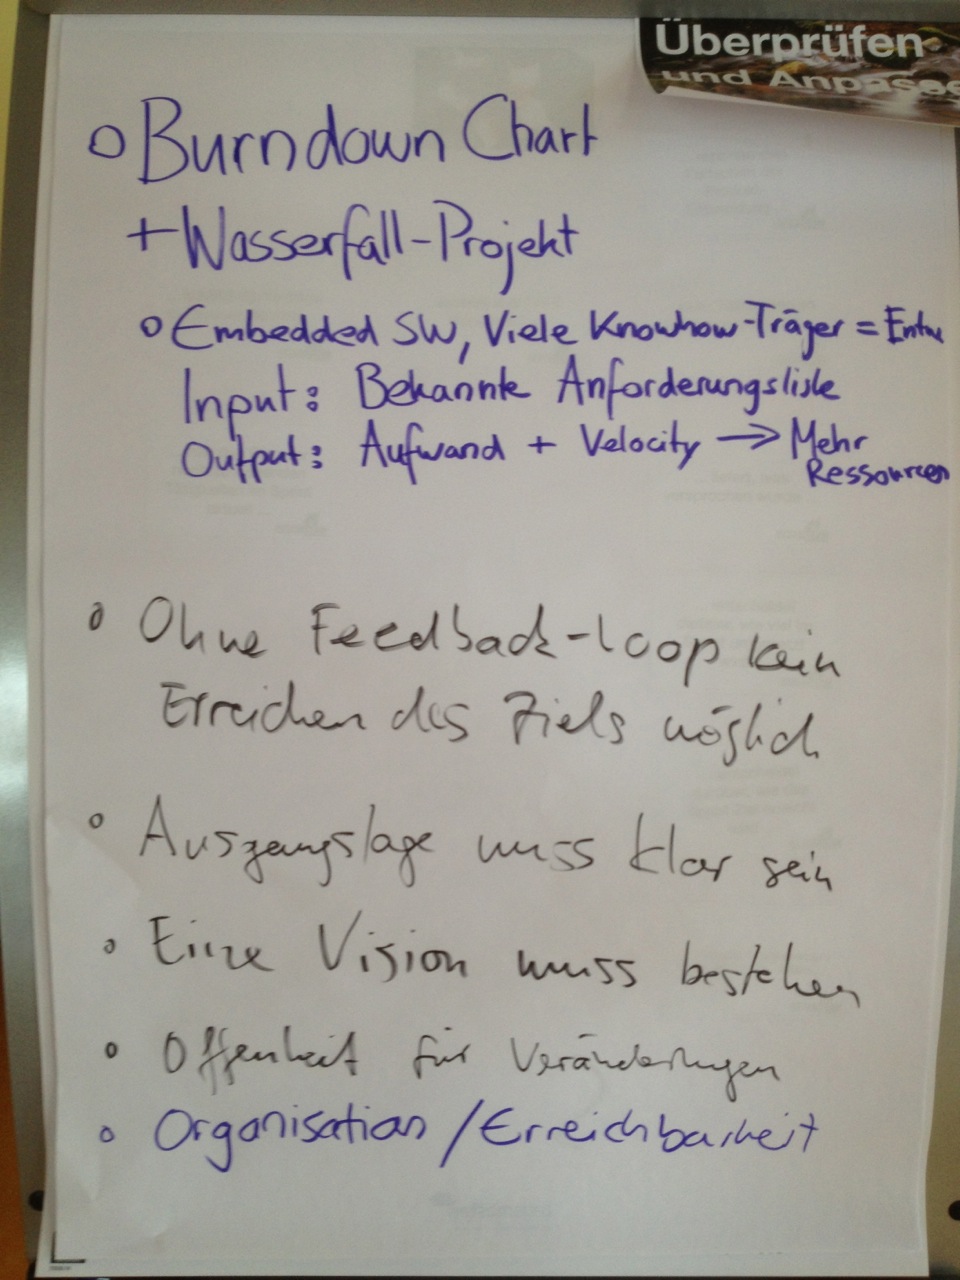 Überprüfen
und Anpasse
o Burndown Chart
+ Wasserfall-Projekt
o Embedded SW, Viele Knowhow-Träger = Entw
Input: Bekannte Anforderungsliste
Output: Aufwand + Velocity → Mehr
Ressourcen
o Ohne Feedback-loop kein
Erreichen des Ziels möglich
o Ausgangslage muss klar sein
o Eine Vision muss bestehen
o Offenheit für Veränderungen
o Organisation / Erreichbarkeit